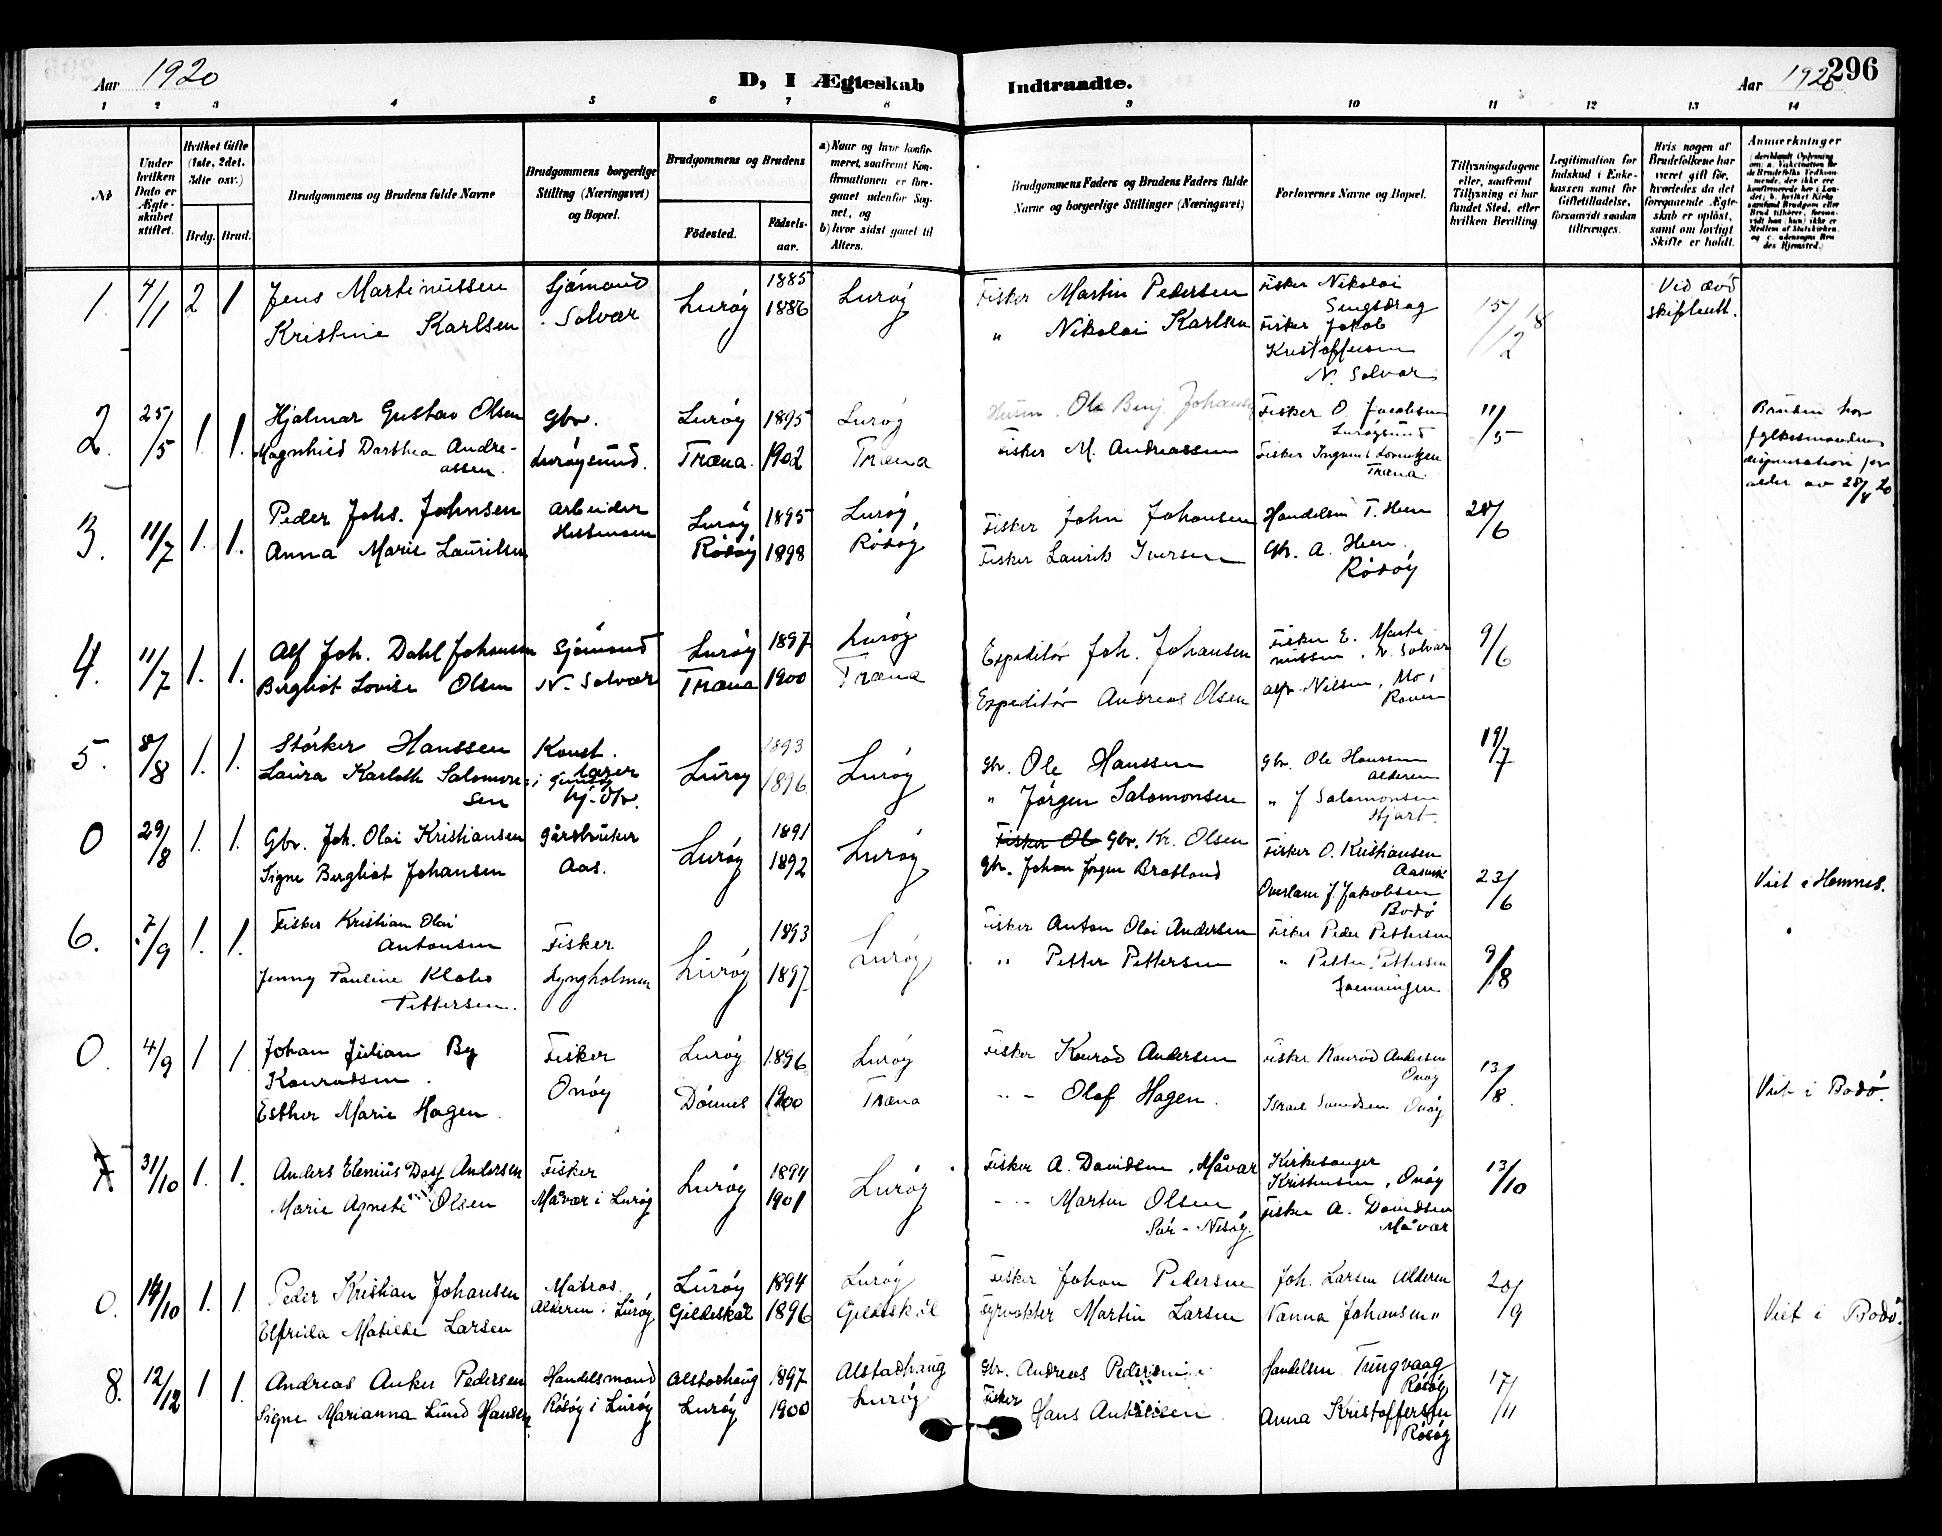 Aar 1920 D, I Ægteskab Indtraadte. Aar 1920 296
1 2 3 4 5 6 7 8 9 10 11 12 13 14
No
Under hvilken Dato er Ægteskabet stiftet.
Hvilket Gifte (1ste, 2det, 3die osv.)
Brdg. Brud.
Brudgommens og Brudens fulde Navne
Brudgommens borgerlige Stilling (Næringsvei) og Bopæl.
Brudgommens og Brudens
Fødested. Fødselsaar.
a) Naar og hvor konfirmeret, saafremt Konfirmationen er foregaaet udenfor Sognet, og
b) hvor sidst gaaet til Alters.
Brudgommens Faders og Brudens Faders fulde Navne og borgerlige Stillinger (Næringsvei)
Forlovernes Navne og Bopæl.
Tillysningsdagene eller, saafremt Tillysning ei har fundet Sted, efter hvilken Bevilling
Legitimation for Indskud i Enkekassen samt for Giftetilladelse, forsaavidt saadan tiltrænges.
Hvis nogen af Brudefolkene har været gift før, hvorledes da det foregaaende Ægteskab er opløst, samt om lovligt Skifte er holdt.
Anmærkninger
1. 4/1 2 1 Jens Martinussen Sjømand Lurøy 1885 Lurøy Fisker Martin Pedersen Fisker Nikolai
Kristine Karlsen Solvær 1886 " Nikolai Karlsen Fisker Jakob
Kristoffersen
N. Solvær
Ved død
skifteatt.
2. 25/5 1. 1. Hjalmar Gustav Olsen Gbr. Lurøy 1895 Lurøy Ole Benj. Johansen Fisker O. Jacobsen 11/5
Lurøysund
Magnhild Dorthea Andreassen Lurøysund. Træna. 1902 Træna Fisker M. Andreassen Fisker Ingvart Lorentzen
Træna.
Bruden har
fylkesmandens
dispensation for
alder av 28/4 20
3. 11/7 1. 1. Peder Johs. Johnsen Arbeider Lurøy 1895 Lurøy Fisker John Johansen Handelsm T. Heen 28/6
Anna Marie Lauritsen Hestmoen Rødøy 1898 Rødøy Fisker Laurits Iversen Gbr. A. Heen.
Rødøy
4. 11/7 1. 1. Alf Joh. Dahl Johansen Sjømand Lurøy 1897 Lurøy Expeditør Joh. Johansen Fisker E. Martinussen, N. Solvær 9/6
Bergliot Lovise Olsen N. Solvær Træna 1900 Træna Expeditør Andreas Olsen Alfr. Nilsen, Mo i
Ranen
5. 8/8 1. 1. Størker Hanssen Lurøy 1893 Lurøy Gbr. Ole Hanssen Gbr. Ole Hanssen 19/7
Alderen
Laura Karloth Salomonsen 1896 " Jørgen Salomonsen " J Salomonsen
Hjart.
0 29/8 1. 1. Gbr. Joh. Olai Kristiansen Gårdbruker Lurøy 1891 Lurøy Fisker Ol Gbr. Kr. Olsen Fisker O. Kristiansen 23/6
Signe Bergliot Johansen Aas. 1892 Gbr. Johan Jørgen Bratland Overlærer J Jakobsen
Bodø
Viet i Hemnes.
6. 7/9 1. 1. Fisker Kristian Olai Antonsen Fisker Lurøy 1893 Lurøy Fisker Anton Olai Andersen Fisker Peder Pettersen 9/8
Jenny Pauline Klara Pettersen. Lyngholmen 1897 " Petter Pettersen " Petter Pettersen
0. 4/9 1 1 Johan Julian By Konradsen. Fisker Lurøy 1896 Lurøy Fisker Konrad Andersen Fisker Konrad Andersen 13/8
Onøy
Esther Marie Hagen. Onøy Dønnes 1900 Træna " Olaf Hagen. Israel Svendsen Onøy
Viet i Bodø.
7 31/10 1. 1. Anders Elenius Dass Andersen Fisker Lurøy 1894 Lurøy Fisker A. Davidsen, Måvær Kirkesanger 13/10
Kristensen, Onøy
Marie Agnete Olsen Måvær i Lurøy 1901 " Martin Olsen, Fisker A. Davidsen
Sør-Nesøy. Måvær
0. 14/10 1. 1. Peder Kristian Johansen Matros. Lurøy 1894 Lurøy Fisker Johan Pedersen Joh. Larsen Alderen 20/9
Elfrida Matilde Larsen Alderen i Lurøy Gildeskål 1896 Gildeskål Fyrvokter Martin Larsen Nanna Johansen "
Viet i Bodø.
8. 12/12 1 1. Andreas Anker Pedersen Handelsmand Alstadhaug 1897 Alstadhaug Gbr. Andreas Pedersen Handelsm Tungvaag 17/11
Rødøy
Signe Marianna Lund Hansen Rødøy i Lurøy Lurøy 1900 Lurøy Fisker Hans Antonsen Anna Kristoffersen
Rødøy